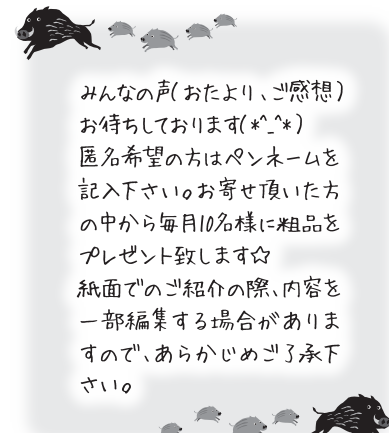 みんなの声(おたより、ご感想)
お待ちしております(*^_^*)
匿名希望の方はペンネームを
記入下さい。お寄せ頂いた方
の中から毎月10名様に粗品を
プレゼント致します☆
紙面でのご紹介の際、内容を
一部編集する場合がありま
すので、あらかじめご了承下
さい。